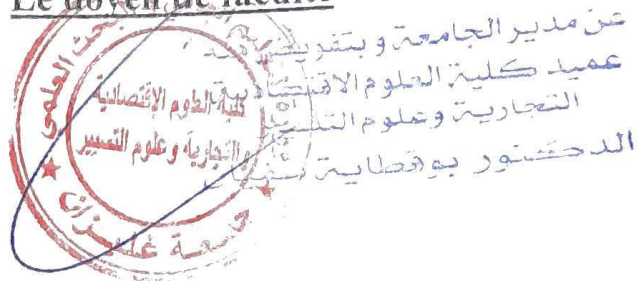 Le doyen de faculté
عن مدير الجامعة و بتفويض منه
عميد كلية العلوم الاقتصادية
التجارية و علوم التسيير
الدكتور بوقطاية سفيان
البحث العلمي
كلية العلوم الإقتصادية
التجارية وعلوم التسيير
جامعة غليزان